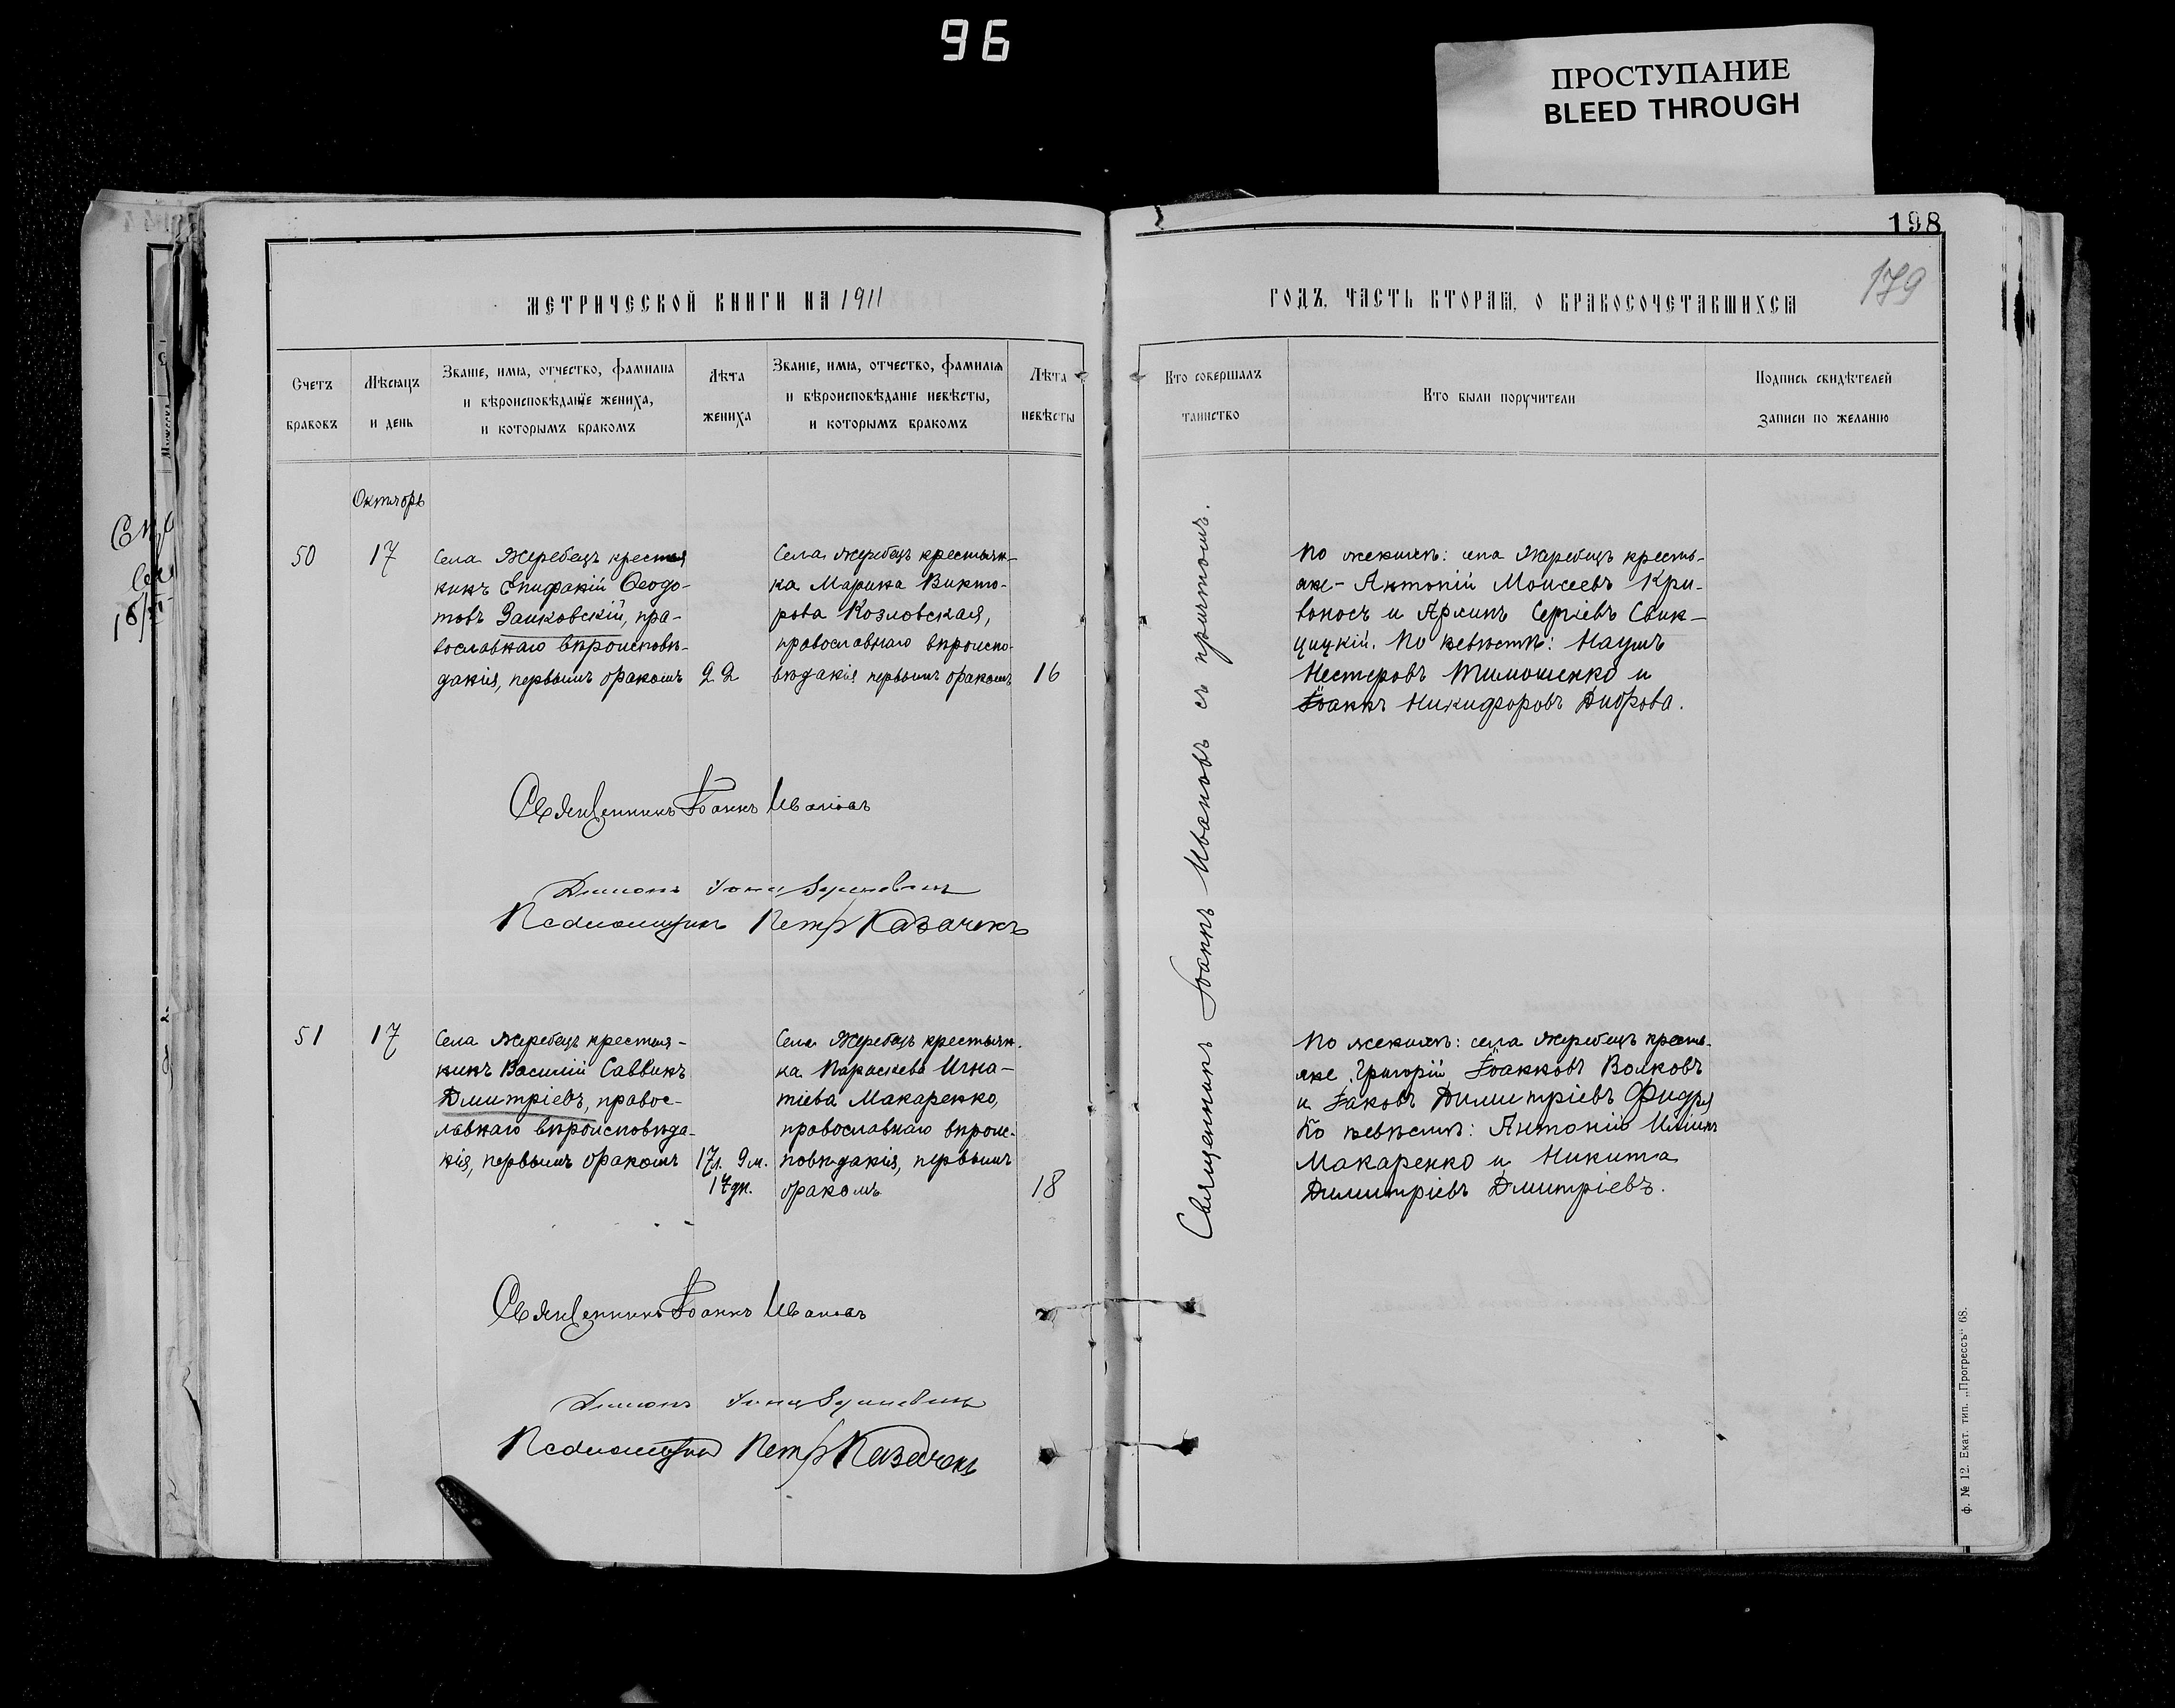 96
ПРОСТУПАНИЕ
BLEED THROUGH
198
179
МЕТРИЧЕСКОЙ КНИГИ НА 1911
ГОДЪ, ЧАСТЬ ВТОРАЯ, О БРАКОСОЧЕТАВШИХСЯ
Счетъ
браковъ
Мѣсяцъ
и день
Званіе, имя, отчество, фамилия
и вѣроисповѣданіе жениха,
и которымъ бракомъ
Лѣта
жениха
Званіе, имя, отчество, фамилія
и вѣроисповѣданіе невѣсты,
и которымъ бракомъ
Лѣта
невѣсты
Кто совершалъ
таинство
Кто были поручители
Подпись свидѣтелей
записи по желанію
Октябрь
50
17
Села Жеребецъ крестья
нинъ Епифаній Ѳеодо-
товъ Заиковскій, пра-
вославнаго вѣроисповѣ-
данія, первымъ бракомъ
22
Села Жеребецъ крестьян-
ка Марина Викто-
рова Козловская,
православнаго вѣроиспо-
вѣданія первымъ бракомъ
16
Священникъ Іоаннъ Ивановъ съ причтомъ.
По женихѣ: села Жеребецъ кресть-
яне - Антоній Моисеевъ Кри-
воносъ и Сергіевъ Свин-
цицкій. По невѣстѣ: Наумъ
Нестеровъ Тимошенко и
Іоаннъ Никифоровъ Диброва.
Священникъ Іоаннъ Ивановъ
Діаконъ
Псаломщикъ Петръ Казачекъ
51
17
Села Жеребецъ крестья-
нинъ Василій Саввинъ
Дмитріевъ, правос-
лавнаго вѣроисповѣда-
нія, первымъ бракомъ
17л. 9м.
17дн.
Села Жеребецъ крестьян-
ка Параскева Игна-
тіева Макаренко,
православнаго вѣроис-
повѣданія, первымъ
бракомъ
18
По женихѣ: села Жеребецъ кресть-
яне Григорій Іоанновъ Волковъ
и Іаковъ Димитріевъ Фидря
По невѣстѣ: Антоній Иліинъ
Макаренко и Никита
Димитріевъ Дмитріевъ.
Священникъ Іоаннъ Ивановъ
Діаконъ
Псаломщикъ Петръ Казачекъ
ф. № 12. Екат. тип. „Прогрессъ“ 68.